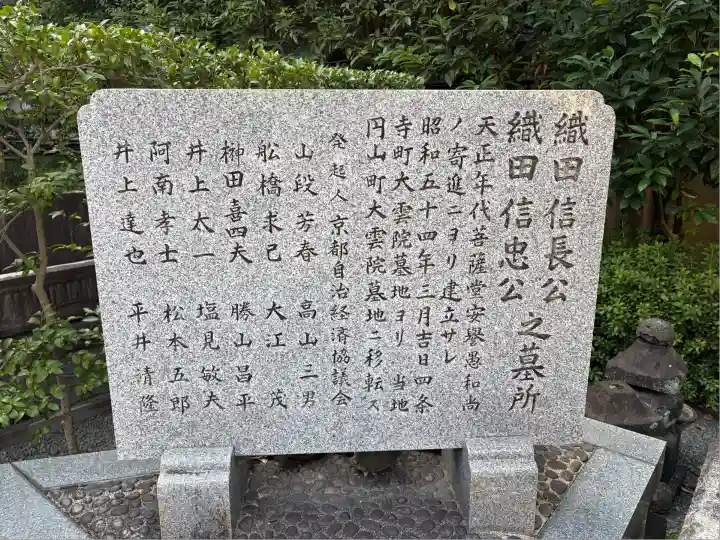 織田信長公
織田信忠公
之墓所
天正年代菩薩堂安譽愚和尚
ノ寄進ニヨリ建立サレ
昭和五十四年三月吉日四条
寺町大雲院墓地ヨリ 当地
円山町大雲院墓地ニ移転ス
発起人 京都自治経済協議会
山段芳春 高山三男
舩橋求己 大江茂
榊田喜四夫 勝山昌平
井上太一 塩見敏夫
阿南孝士 松本五郎
井上達也 平井清隆